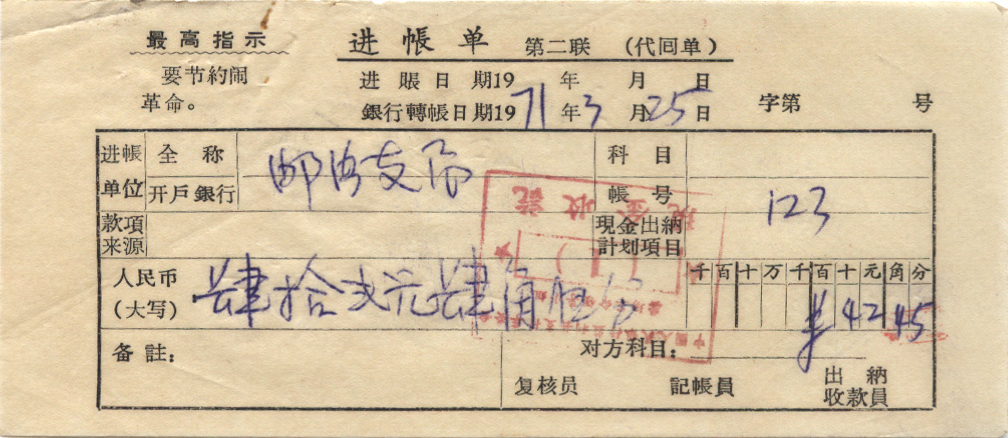 最高指示
要节約闹
革命。
进帳单 第二联 (代回单)
进賬日期19 年 月 日
銀行轉帳日期1971年3月25日 字第 号
进帳单位 全称 邮电支局 科目
开戶銀行 帳号 123
款項来源 現金出納計划項目
人民币(大写) 肆拾弍元肆角伍分
千百十万千百十元角分
¥4245
备註: 对方科目:
复核员 記帳員 出納收款員
現金收訖
(1)